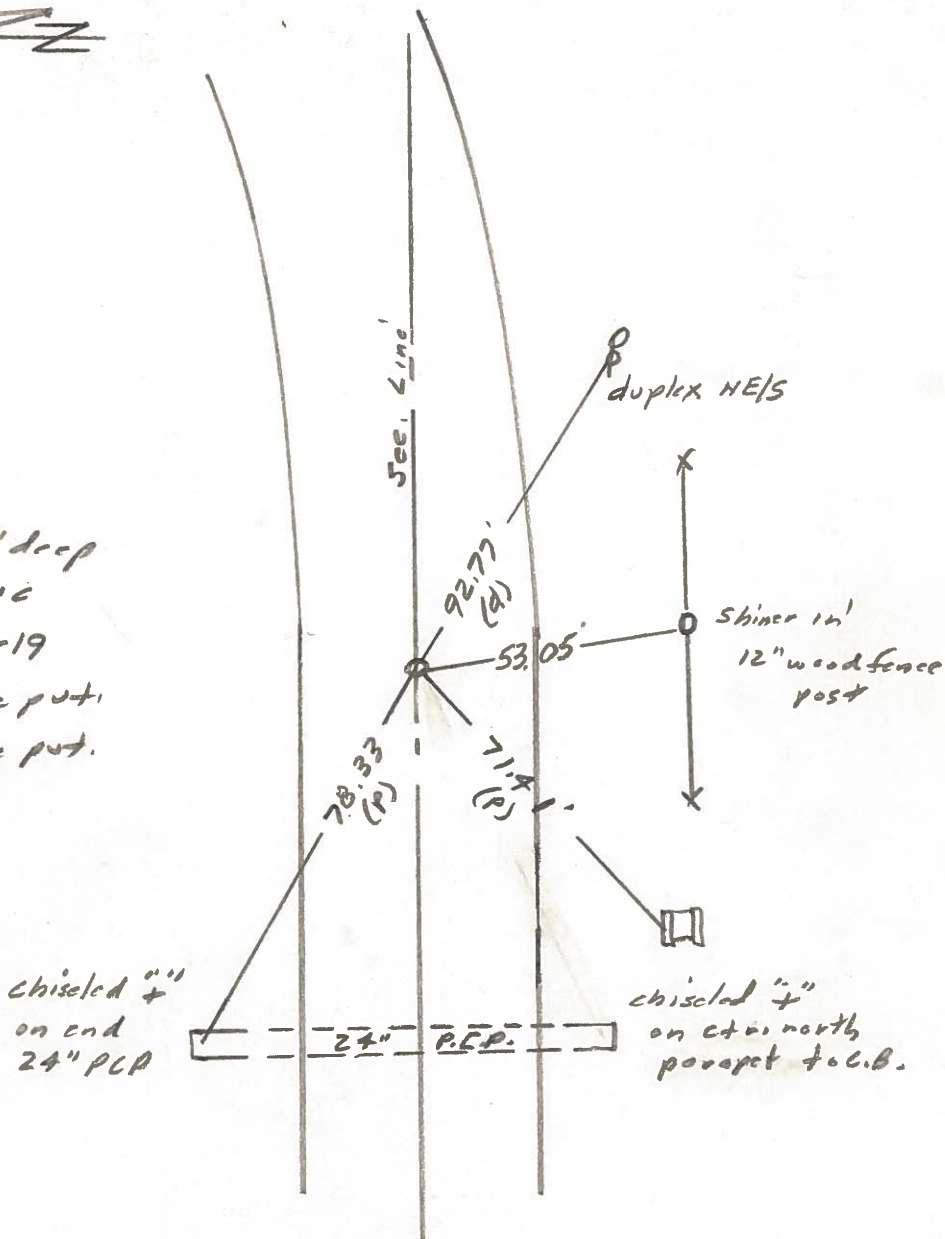 N
Sec. Line
duplex NE/S
92.77'
(d)
deep
-19
pvt.
pvt.
53.05'
Shiner in
12" wood fence
post
78.33
(p)
71.
(p)
chiseled "+"
on end
24" PCP
24" P.C.P.
chiseled "+"
on ctr. north
parapet to C.B.